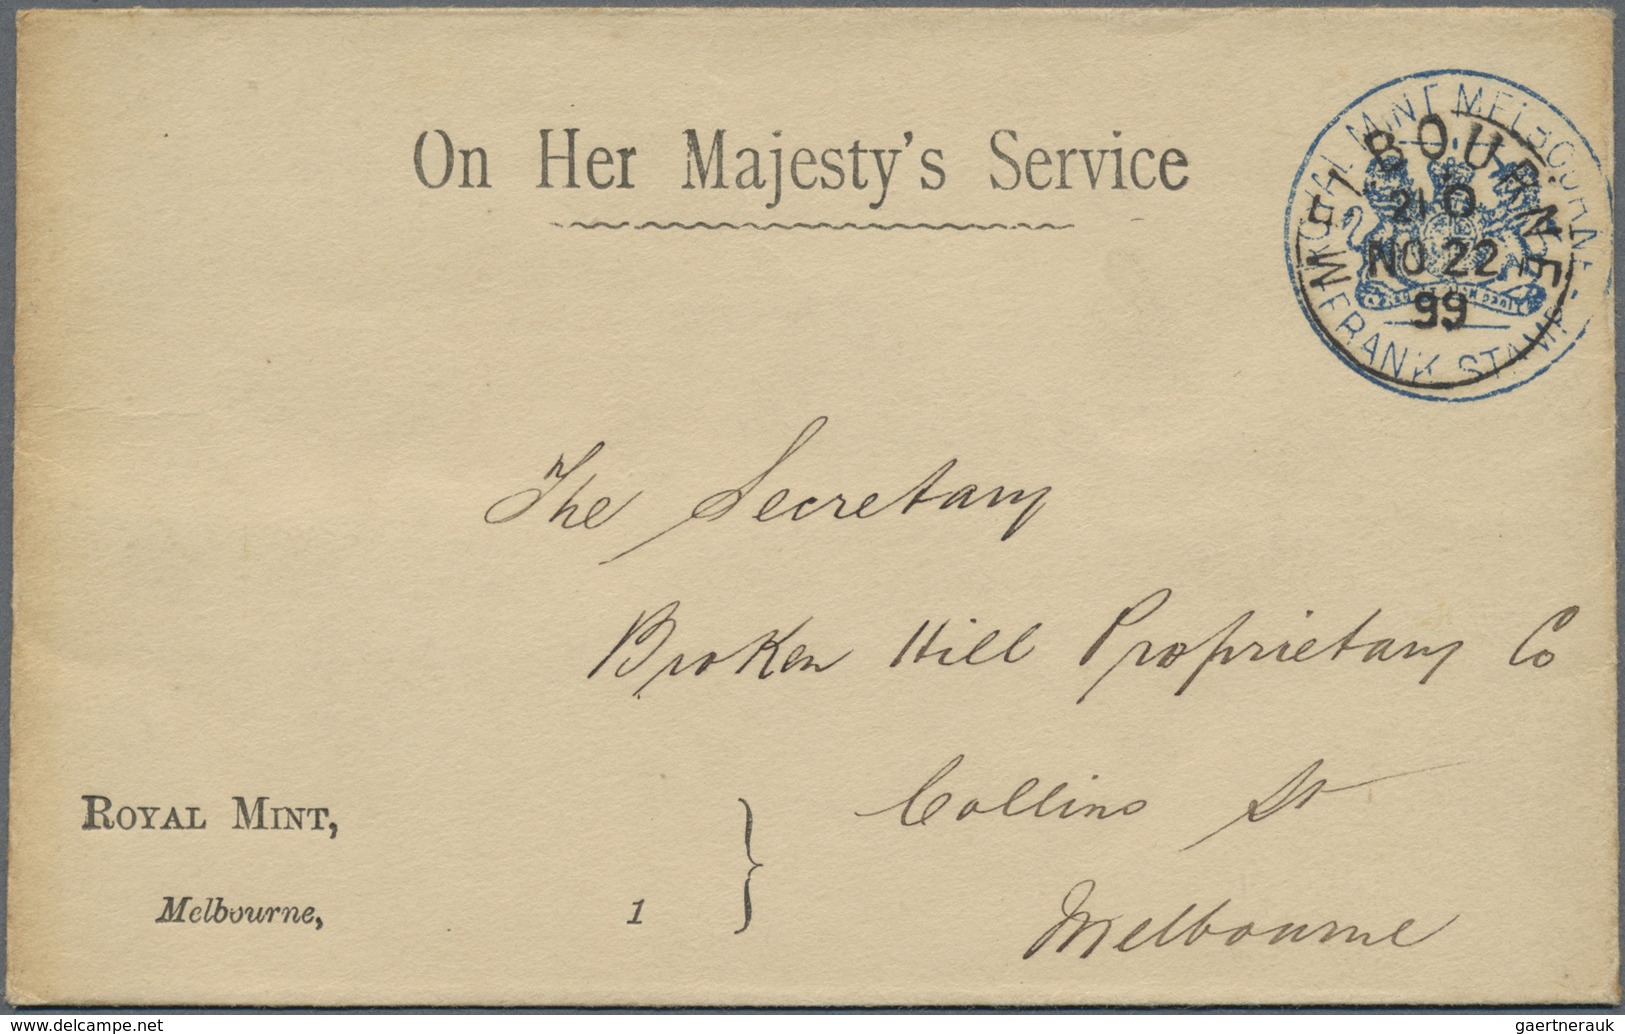 On Her Majesty's Service
ROYAL MINT MELBOURNE
FRANK STAMP
MELBOURNE
21 O
NO 22
99
The Secretary
Broken Hill Proprietary Co
Collins St
Melbourne
ROYAL MINT,
Melbourne, 1
delcampe.net
gaertnerauk